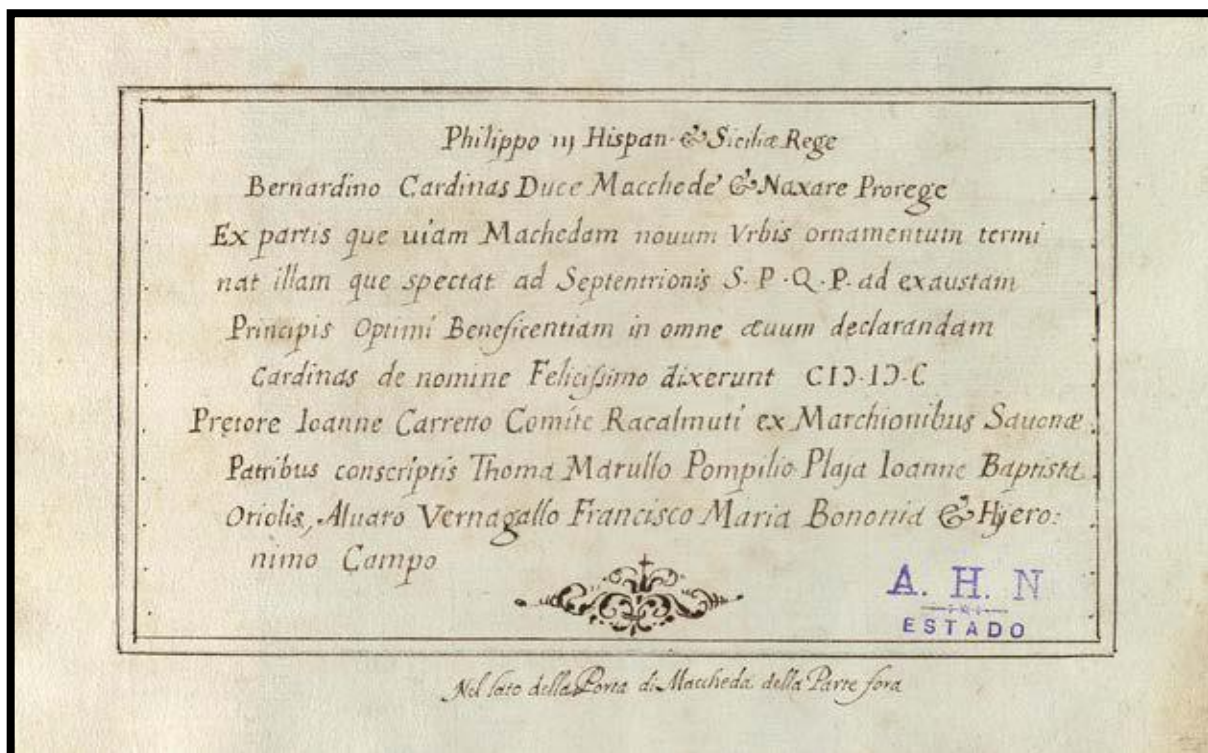 Philippo iij Hispan· & Siciliæ Rege
Bernardino Cardinas Duce Macchede' & Naxare Prorege
Ex partis que uiam Machedam nouum Vrbis ornamentum termi
nat illam que spectat ad Septentrionis S. P. Q. P. ad exaustam
Principis Optimi Beneficentiam in omne æuum declarandam
Cardinas de nomine Felicissimo dixerunt CIↃ·IↃ·C
Pretore Ioanne Carreno Comite Racalmuti ex Marchionibus Sauonæ
Patribus conscriptis Thoma Marullo Pompilio Plaja Ioanne Baptista
Oriolis, Aluaro Vernagallo Francisco Maria Bononia & Hjero:
nimo Campo
A. H. N
ESTADO
Nel lato della Porta di Maccheda della Parte fora